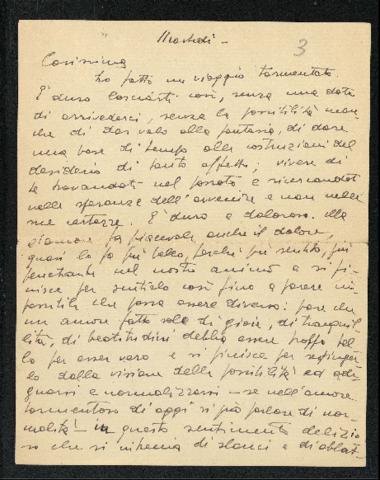 Martedì -
3
Carissima
ho fatto un viaggio tormentato.
È duro lasciarsi così, senza una data
di arrivederci, senza la possibilità nean
che di dar volo alla fantasia, di dare
una base di tempo alle costruzioni del
desiderio di tanto affetto; vivere di
te trovandoti nel passato e ricercandoti
nelle speranze dell'avvenire e non nelle
sue certezze. È duro e doloroso. Ma
l'amore fa piacevole anche il dolore,
quasi lo fa più bello, perché più sentito, più
penetrante nel nostro animo e si fi-
nisce per sentirlo così fino a parere im-
possibile che possa essere diverso: pare che
un amore fatto solo di gioie, di tranquil
lità, di beatitudini debba essere troppo bel
lo per esser vero e si finisce per respinger
lo dalla visione della possibilità ed ade-
guarsi e normalizzarsi - se nell'amore
tormentoso di oggi si può parlare di nor-
malità! - in questo sentimento delizio
so che si intreccia di slanci e di